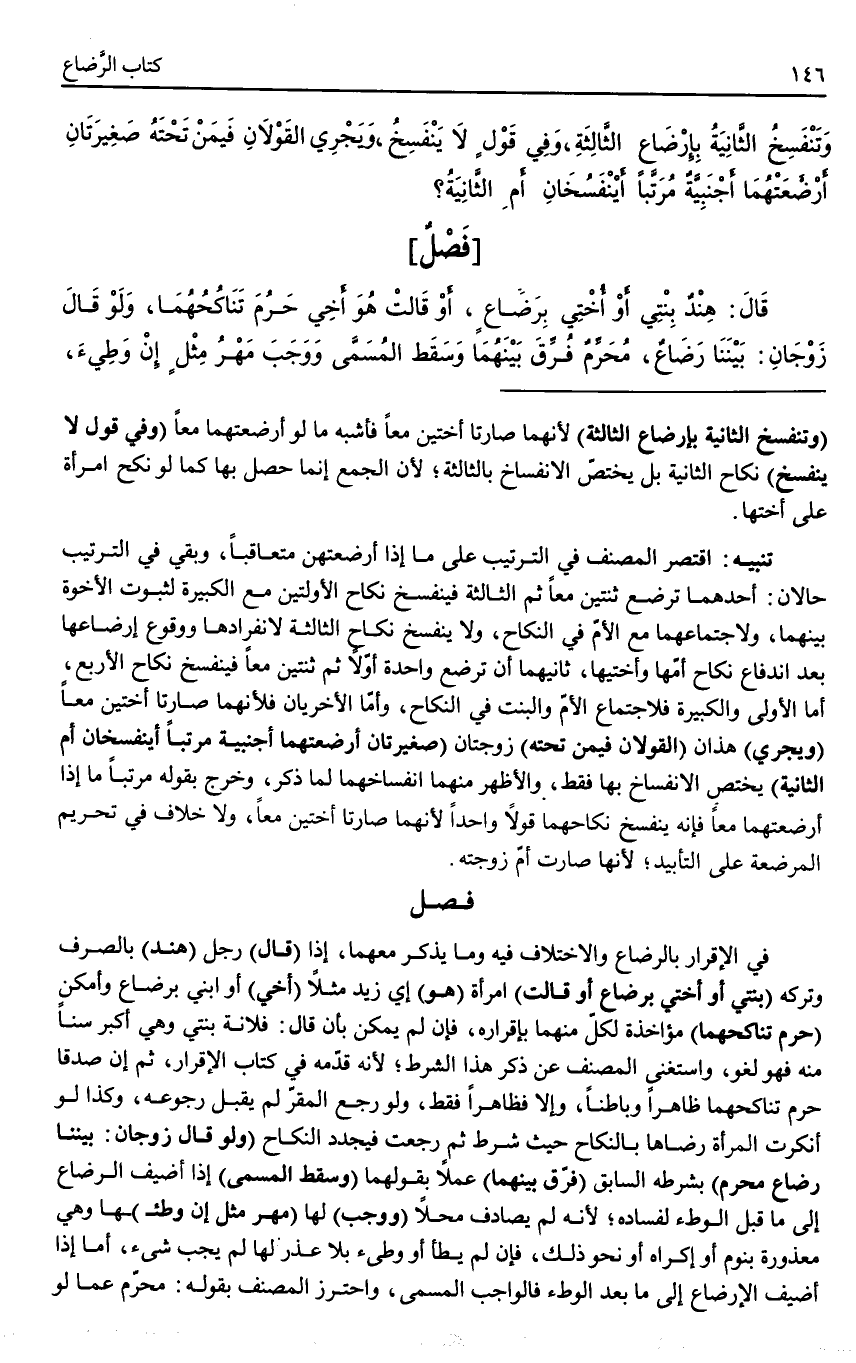 ١٤٦ كتاب الرَّضاع
وَتَنْفَسِخُ الثَّانِيَةُ بِإِرْضَاعِ الثَّالِثَةِ، وَفِي قَوْلٍ لَا يَنْفَسِخُ، وَيَجْرِي القَوْلَانِ فِيمَنْ تَحْتَهُ صَغِيرَتَانِ
أَرْضَعَتْهُمَا أَجْنَبِيَّةٌ مُرَتَّباً أَيَنْفَسُخَانِ أَمِ الثَّانِيَةُ؟
[فَصْلٌ]
قَالَ: هِنْدٌ بِنْتِي أَوْ أُخْتِي بِرَضَاعٍ، أَوْ قَالتْ هُوَ أَخِي حَرُمَ تَنَاكُحُهُمَا، وَلَوْ قَالَ
زَوْجَانِ: بَيْنَنَا رَضَاعٌ، مُحَرِّمٌ فُرِّقَ بَيْنَهُمَا وَسَقَط المُسَمَّى وَوَجَبَ مَهْرُ مِثْلٍ إِنْ وَطِيءَ،
(وتنفسخ الثانية بإرضاع الثالثة) لأنهما صارتا أختين معاً فأشبه ما لو أرضعتهما معاً (وفي قول لا
ينفسخ) نكاح الثانية بل يختصّ الانفساخ بالثالثة؛ لأن الجمع إنما حصل بها كما لو نكح امرأة
على أختها.
تنبيه: اقتصر المصنف في الترتيب على ما إذا أرضعتهن متعاقباً، وبقي في الترتيب
حالان: أحدهما ترضع ثنتين معاً ثم الثالثة فينفسخ نكاح الأولتين مع الكبيرة لثبوت الأخوة
بينهما، ولاجتماعهما مع الأمّ في النكاح، ولا ينفسخ نكاح الثالثة لانفرادها ووقوع إرضاعها
بعد اندفاع نكاح أمّها وأختيها، ثانيهما أن ترضع واحدة أوّلاً ثم ثنتين معاً فينفسخ نكاح الأربع،
أما الأولى والكبيرة فلاجتماع الأمّ والبنت في النكاح، وأمّا الأخريان فلأنهما صارتا أختين معاً
(ويجري) هذان (القولان فيمن تحته) زوجتان (صغيرتان أرضعتهما أجنبية مرتباً أينفسخان أم
الثانية) يختص الانفساخ بها فقط، والأظهر منهما انفساخهما لما ذكر، وخرج بقوله مرتباً ما إذا
أرضعتهما معاً فإنه ينفسخ نكاحهما قولاً واحداً لأنهما صارتا أختين معاً، ولا خلاف في تحريم
المرضعة على التأبيد؛ لأنها صارت أمّ زوجته.
فصل
في الإقرار بالرضاع والاختلاف فيه وما يذكر معهما، إذا (قال) رجل (هند) بالصرف
وتركه (بنتي أو أختي برضاع أو قالت) امرأة (هو) إي زيد مثلاً (أخي) أو ابني برضاع وأمكن
(حرم تناكحهما) مؤاخذة لكلّ منهما بإقراره، فإن لم يمكن بأن قال: فلانة بنتي وهي أكبر سناً
منه فهو لغو، واستغنى المصنف عن ذكر هذا الشرط؛ لأنه قدّمه في كتاب الإقرار، ثم إن صدقا
حرم تناكحهما ظاهراً وباطناً، وإلا فظاهراً فقط، ولو رجع المقرّ لم يقبل رجوعه، وكذا لو
أنكرت المرأة رضاها بالنكاح حيث شرط ثم رجعت فيجدد النكاح (ولو قال زوجان: بيننا
رضاع محرم) بشرطه السابق (فرّق بينهما) عملاً بقولهما (وسقط المسمى) إذا أضيف الرضاع
إلى ما قبل الوطء لفساده؛ لأنه لم يصادف محلاً (ووجب) لها (مهر مثل إن وطئـ )ـها وهي
معذورة بنوم أو إكراه أو نحو ذلك، فإن لم يطأ أو وطيء بلا عذر لها لم يجب شيء، أما إذا
أضيف الإرضاع إلى ما بعد الوطء فالواجب المسمى، واحترز المصنف بقوله: محرّم عما لو